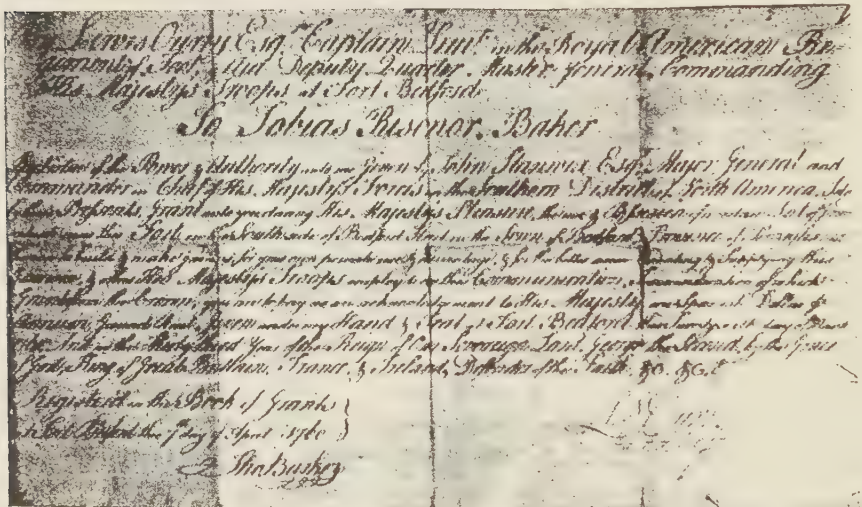 By Lewis Ourry Esqr. Captain Lieut. in the Royal American Re-
giment of Foot, and Deputy Quarter Master General, Commanding
His Majesty's Troops at Fort Bedford
To Tobias Risenor. Baker
By Virtue of the Power & Authority unto me Given by John Stanwix Esqr. Major General and
Commander in Chief of His Majesty's Forces in the Southern District of North America, I do
by these Presents, Grant unto you during His Majesty's Pleasure, the use & of a certain Lot of
this Fort, on the South side of Bedford Street in the Town of Bedford & Province of
build & make for your own private use & for the better & Supplying this
Garrison, & other His Majesty's Troops employ'd on this Communication, in Consideration of which
Grant from the Crown, you are to pay as an acknowledgment to His Majesty one Spanish Dollar
Annum, Ground Rent. Given under my Hand & Seal, at Fort Bedford this day of
1760. And in the Thirty third Year of the Reign of Our Sovereign Lord George the Second, by the Grace
of God, King of Great Brittain, France, & Ireland, Defender of the Faith, &c. &c.
Registred in the Book of Grants
at Fort Bedford this 7th day of April 1760
Tho Bushby